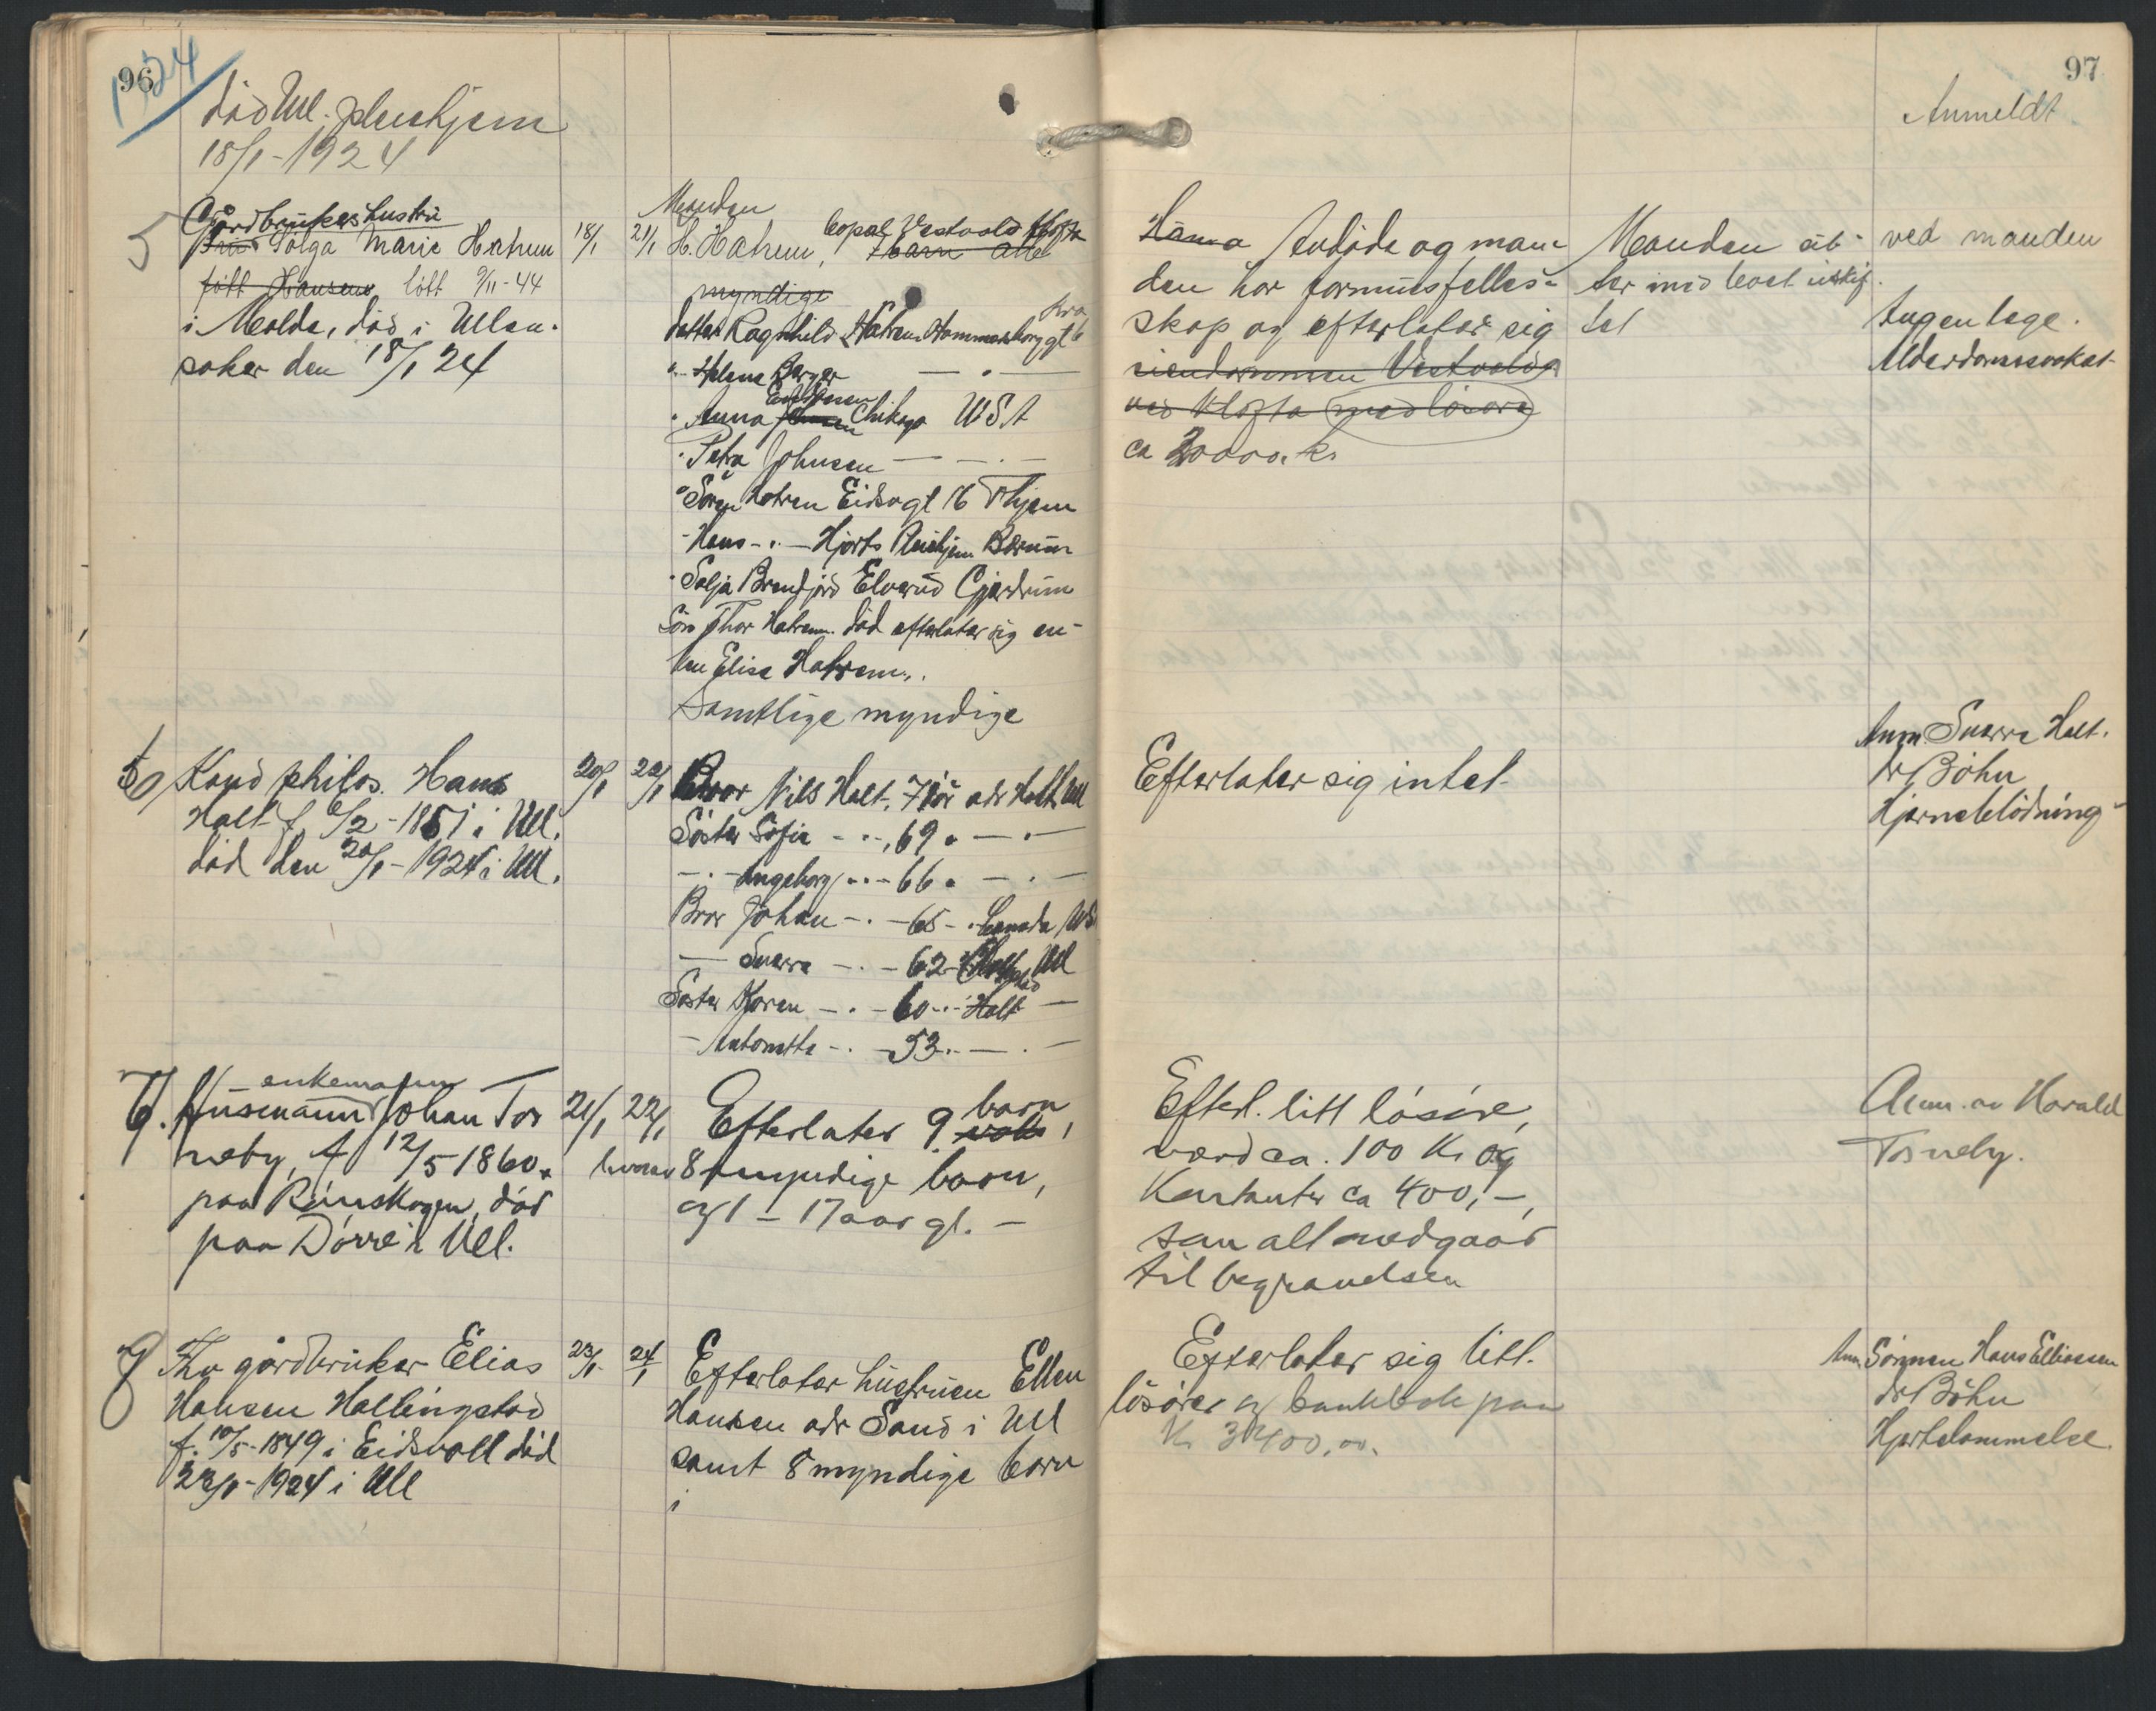 96
1924
død Ull. pleiehjem
18/1-1924
5
Gårdbrukerhustru
Solga Marie Hatrem
født Hansen født 9/11-44
i Molde, død i Ullen-
saker den 18/1 24
18/1
21/1
Manden
H. Hatrem, Vestvold Kløfta
7 barn alle
myndige
datter Ragnhild Hatrem Hammersborggt 6
Kra
" Helene Berger — " —
" Anna Chikago USA
" Petra Johnsen — " —
" Søren Hatrem Eidsvogt 16 Thjem
- Hans - " - Hjorts Pleiehjem Bærum
" Solja Elverud Gjerdrum
Søn Thor Hatrem død efterlater sig en-
ken Elise Hatrem.
Samtlige myndige
6
Kand philos. Hans
Holt f. 6/2-1851 i Ull.
død den 20/1-1924 i Ull.
20/1
22/1
Bror Nils Holt, 71 år adr Holt Ull
Søster Sofie - " -, 69 " - " -
- " - Ingeborg - " - 66 " - " -
Bror Johan - " - 65 - " Canada
— Sverre - " - 62 - Ull
Søster Karen - " - 60 - " - Holt —
- Antonette - " - 53 - " - " -
7.
enkemann
Husmann Johan Tor
neby, f 12/5 1860
paa Rømskogen, død
paa Dørre i Ull.
21/1
22/1
Efterlater 9 barn,
hvorav 8 myndige barn,
og 1 - 17 aar gl. -
8
Fhv gårdbruker Elias
Hansen Hallingstad
f. 10/5-1849 i Eidsvoll død
23/1-1924 i Ull
23/1
24/1
Efterlater hustruen Ellen
Hansen adr Sand i Ull
samt 8 myndige barn
i
97
Anmeldt
avdøde og man-
den har formuesfelles-
skap og efterlater sig
eiendommen Vestvold
ved Kløfta med løsøre
ca 20000. kr
Manden sit-
ter med boet uskif-
tet
ved manden
Ingen læge.
Alderdomssvakhet
Efterlater sig intet
Anm Sverre Holt.
dr Bøhn
Hjerneblødning
Efterl. litt løsøre,
værd ca. 100 Kr og
Kontanter ca 400,-,
som alt medgaar
til begravelsen
Anm. av Harald
Torneby.
Efterlater sig litt
løsøre og bankbok paa
Kr 3400,00.
Anm Sønnen Hans Eliassen
dr Bøhn
Hjertelammelse.